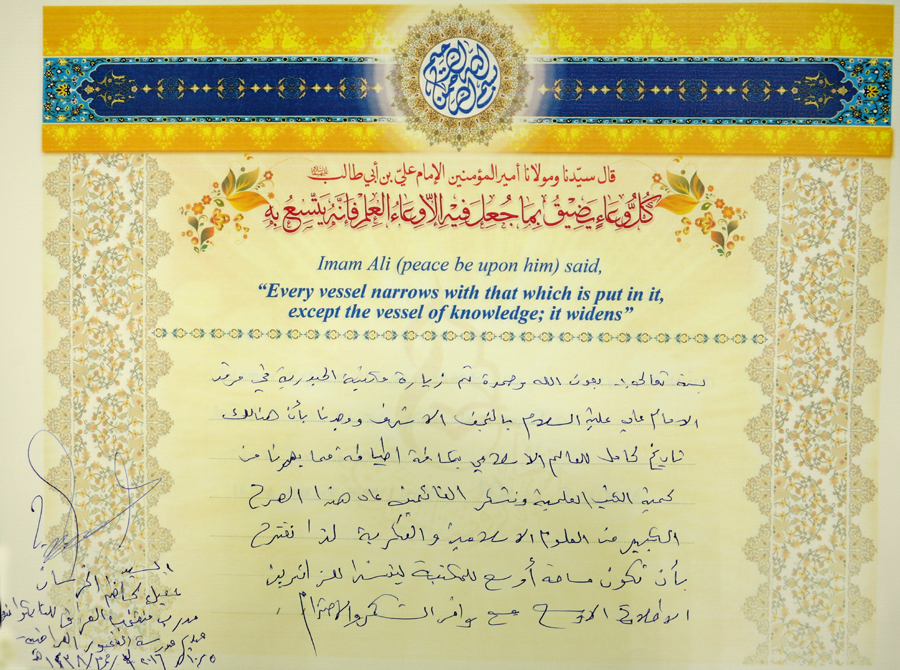 بسم الله الرحمن الرحيم
قال سيّدنا ومولانا أمير المؤمنين الإمام عليّ بن أبي طالب
كُلُّ وِعَاءٍ يَضِيْقُ بِمَا جُعِلَ فِيْهِ إِلاَّ وِعَاءُ العِلْمِ فَإِنَّهُ يَتَّسِعُ بِهِ
Imam Ali (peace be upon him) said,
“Every vessel narrows with that which is put in it,
except the vessel of knowledge; it widens”
بعون الله وحمده تم زيارة مكتبة الحيدرية في مرقد
الامام علي عليه السلام بالنجف الاشرف ووجدنا بأن هنالك
تاريخ كامل للعالم الاسلامي بكافة اطيافه مما يبهرنا من
كمية الكتب العلمية ونشكر القائمين على هذا الصرح
الكبير من العلوم الاسلامية والفكرية لذا نقترح
بأن تكون مساحة أوسع للمكتبة ليتسنى للزائرين
الاطلاع الاوسع مع وافر الشكر والاحترام
السيد
عقيل كاظم الخرسان
مدرب منتخب العراق
مدير مدرسة